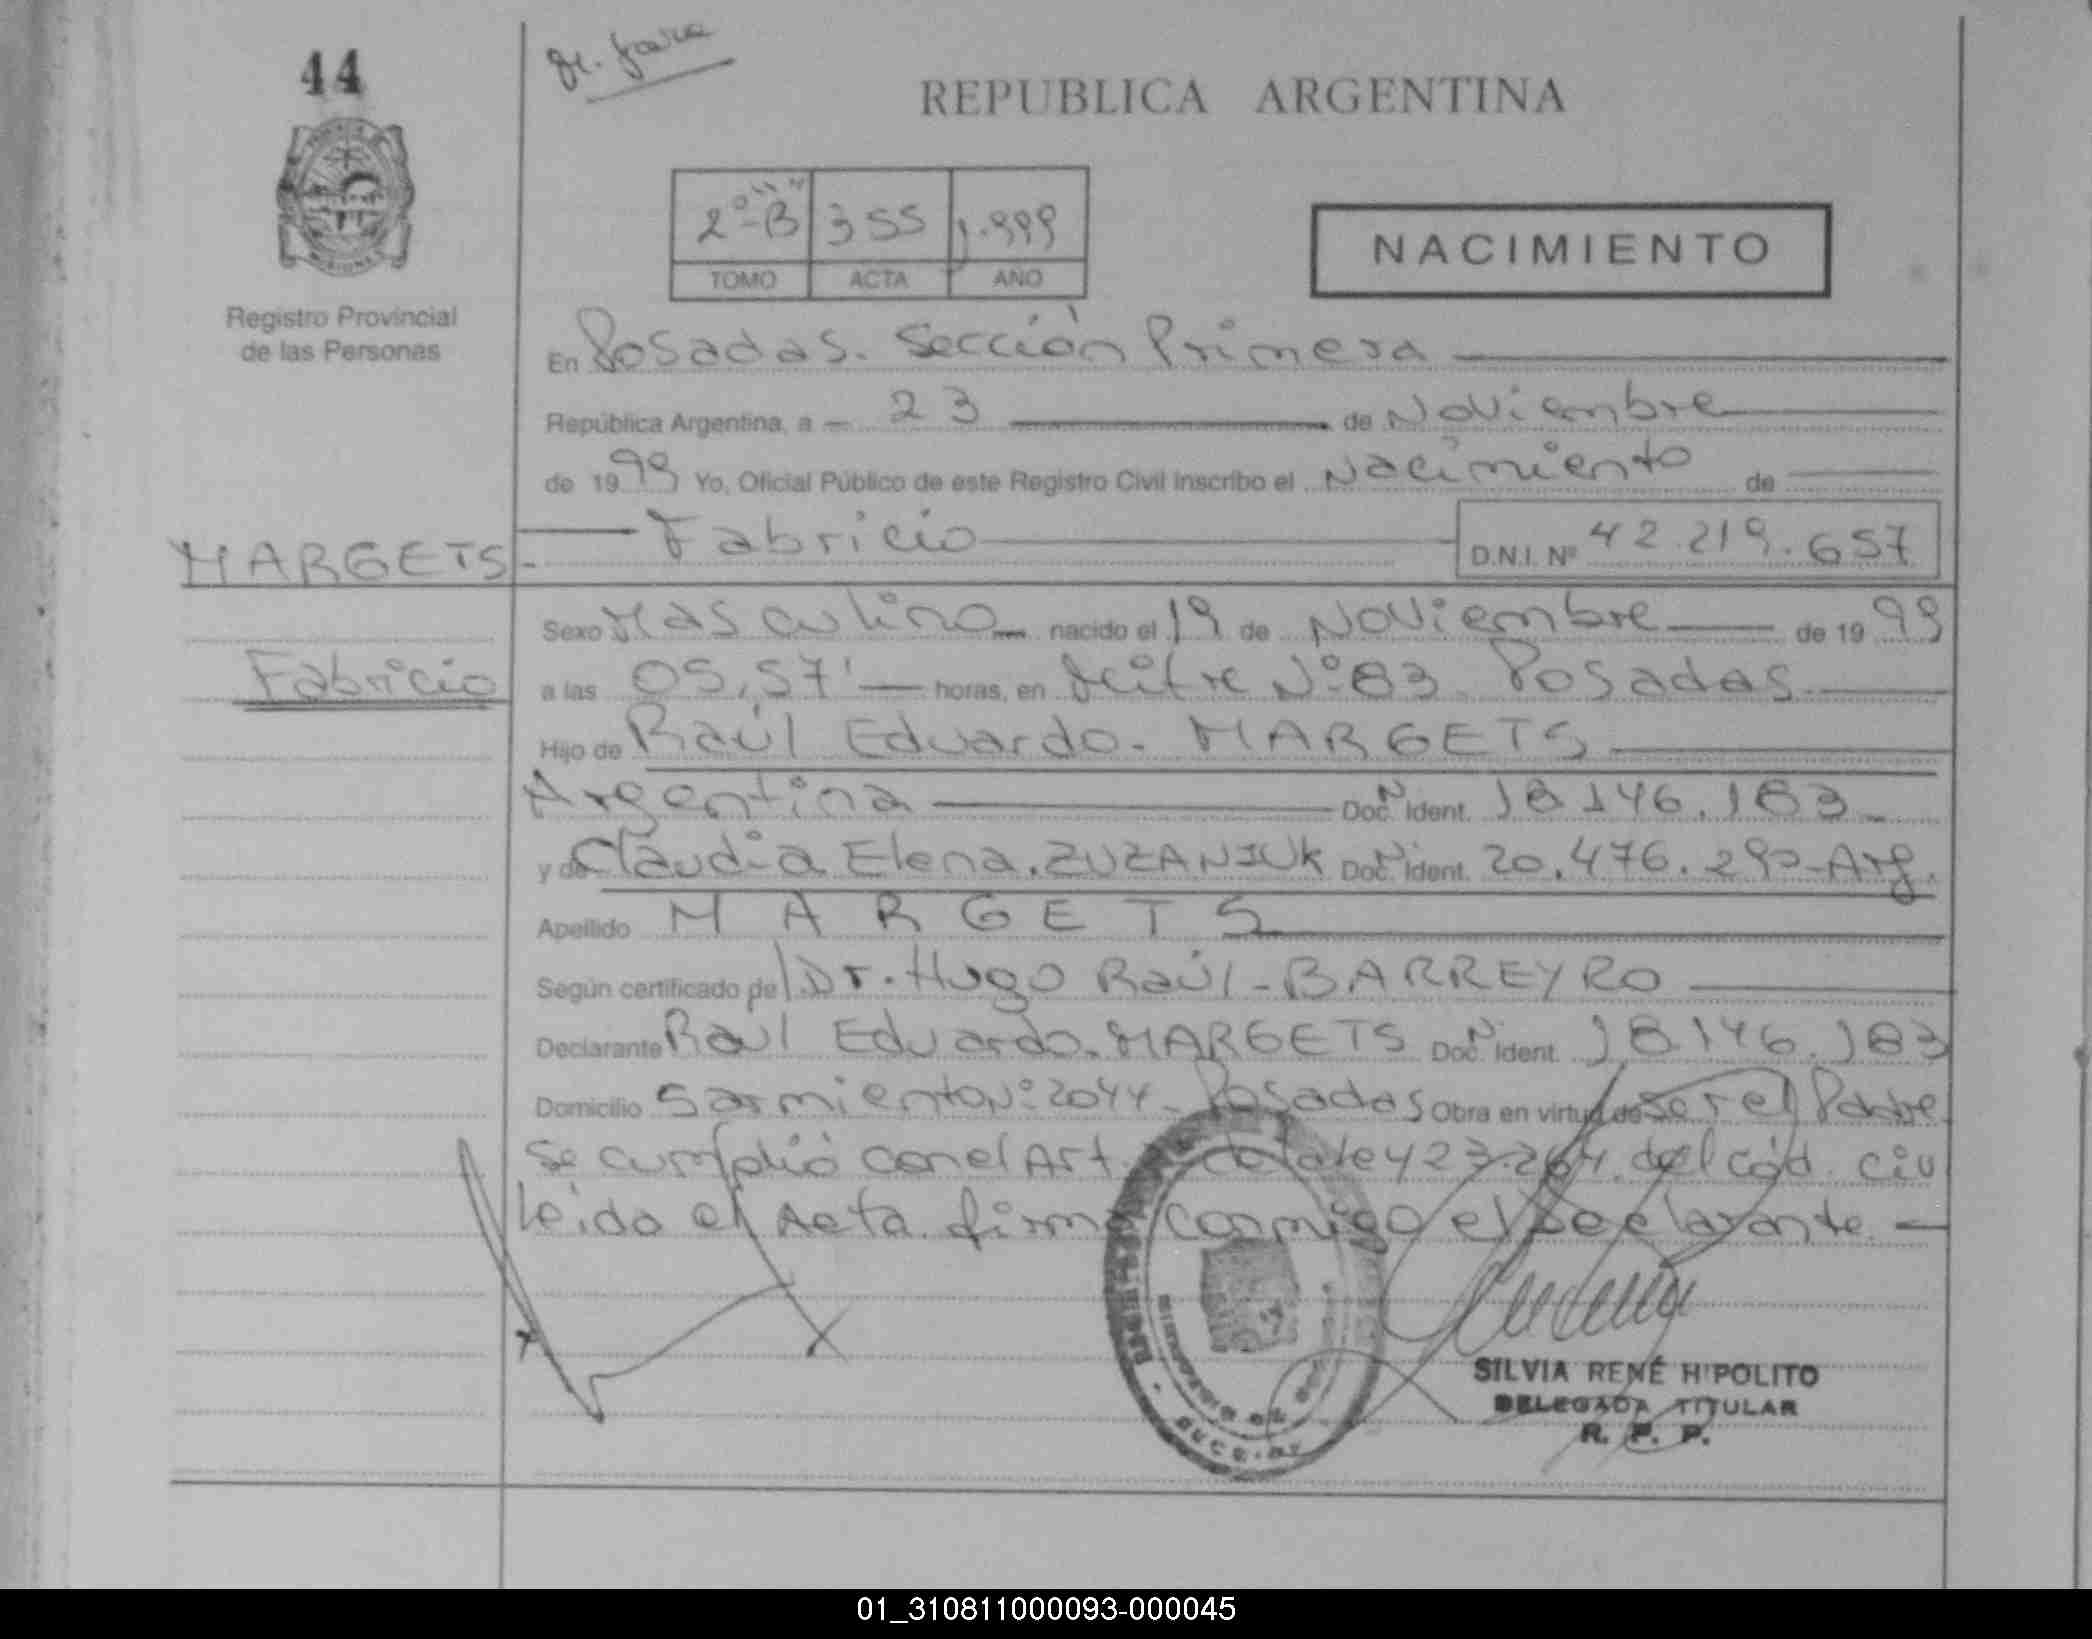 44
REPUBLICA ARGENTINA
2º-"B" 355 1.999
TOMO ACTA AÑO
NACIMIENTO
Registro Provincial
de las Personas
En Posadas. Sección Primera
República Argentina, a 23 de Noviembre
de 1999 Yo, Oficial Público de este Registro Civil inscribo el Nacimiento de
MARGETS - Fabricio D.N.I. Nº 42.219.657
Sexo Masculino nacido el 19 de Noviembre de 1999
Fabricio
a las 05,57' horas, en Mitre Nº 83 Posadas
Hijo de Raúl Eduardo. MARGETS
Argentina Doc. N Ident. 18.146.183
y de Claudia Elena. ZUZANIUK Doc. N Ident. 20.476.290-Arg.
Apellido MARGETS
Según certificado de Dr. Hugo Raúl-BARREYRO
Declarante Raúl Eduardo. MARGETS Doc. N Ident. 18.146.183
Domicilio Sarmiento Nº 2044- Posadas Obra en virtud de ser el Padre
Se cumplió con el Art. de la ley 23.264. del Cód. Civ
leido el Acta. firma conmigo el Declarante
SILVIA RENÉ HIPOLITO
DELEGADA TITULAR
R. P. P.
01_310811000093-000045